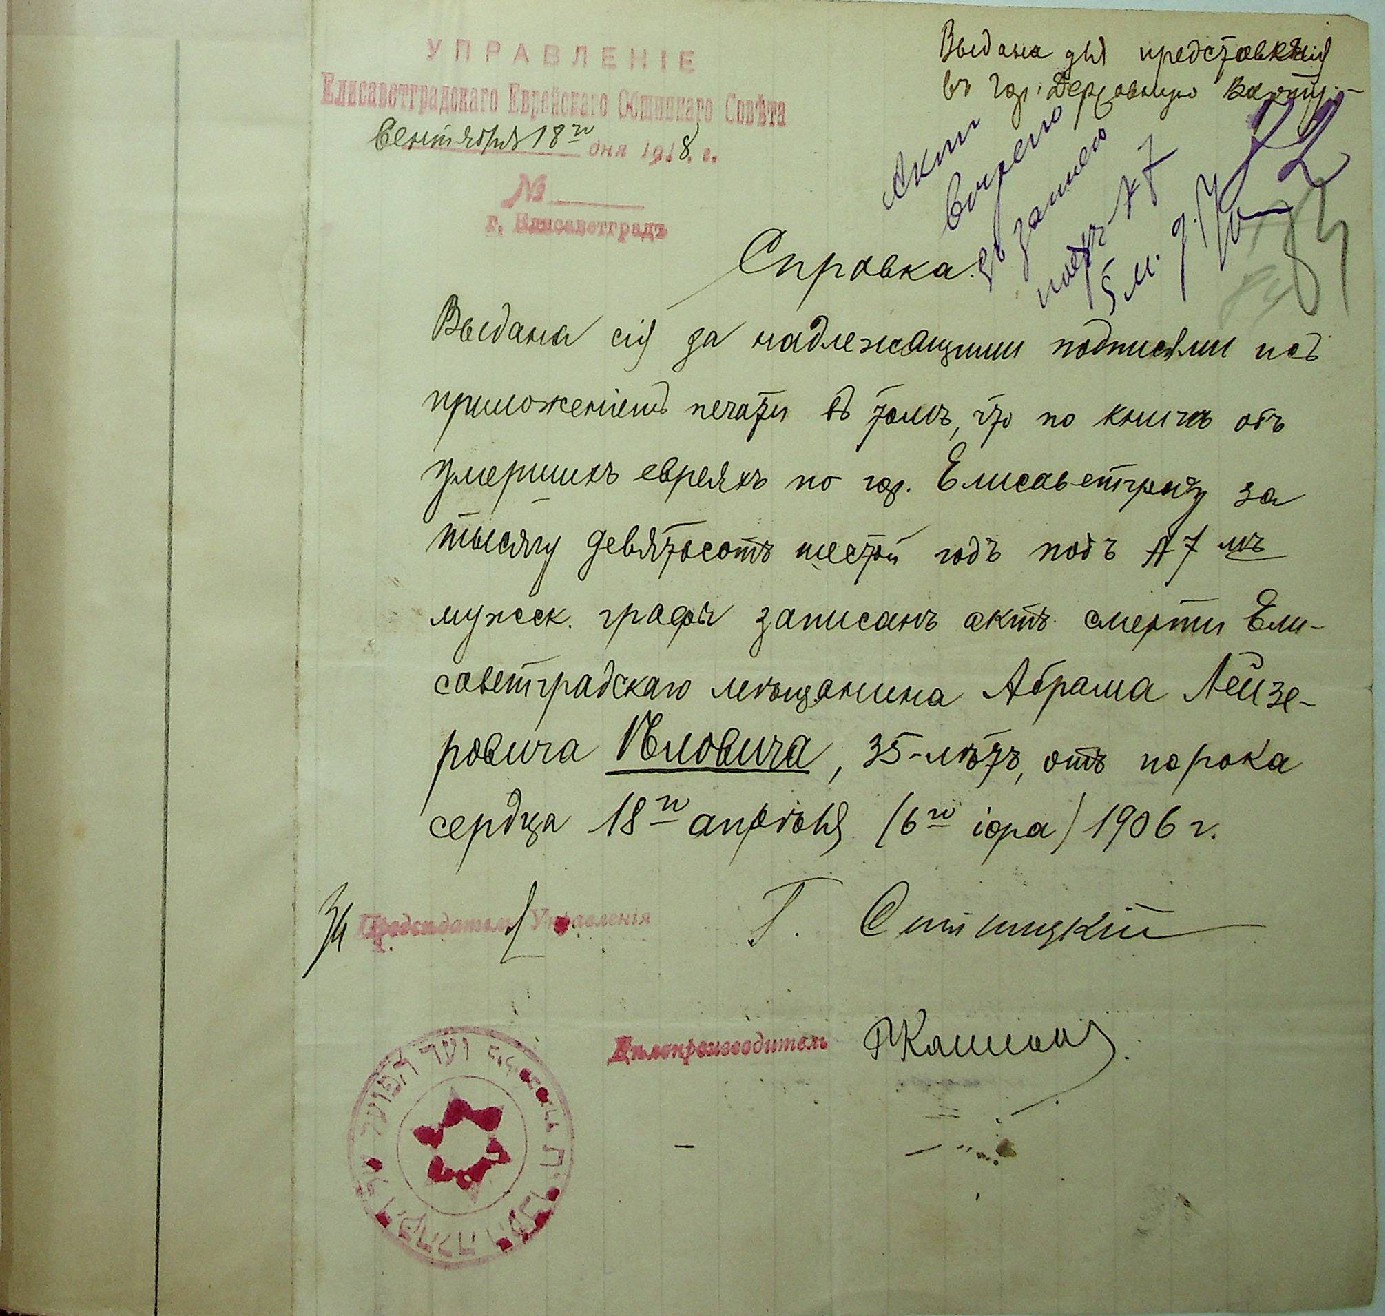 УПРАВЛЕНІЕ
Елисаветградскаго Еврейскаго Общиннаго Совѣта
Сентября 18го дня 1918. г.
№
г. Елисаветградъ
Выдана для представленія
въ Гор. Державную Варту.
Актъ
под 77
м.
72
Справка.
Выдана сія за надлежащими подписями и съ
приложеніемъ печати въ томъ, что по книгѣ объ
умершихъ евреяхъ по гор. Елисаветграду за
тысячу девятьсотъ шестой годъ подъ №7 мъ
мужск. графы записанъ актъ смерти Ели-
саветградскаго мѣщанина Абрама Лейзе-
ровича , 35-лѣтъ, отъ порока
сердца 18го апрѣля (6го іора) 1906 г.
За Предсѣдателя Управленія Г.
Дѣлопроизводитель
ועד הפועל של הקהלה העברית